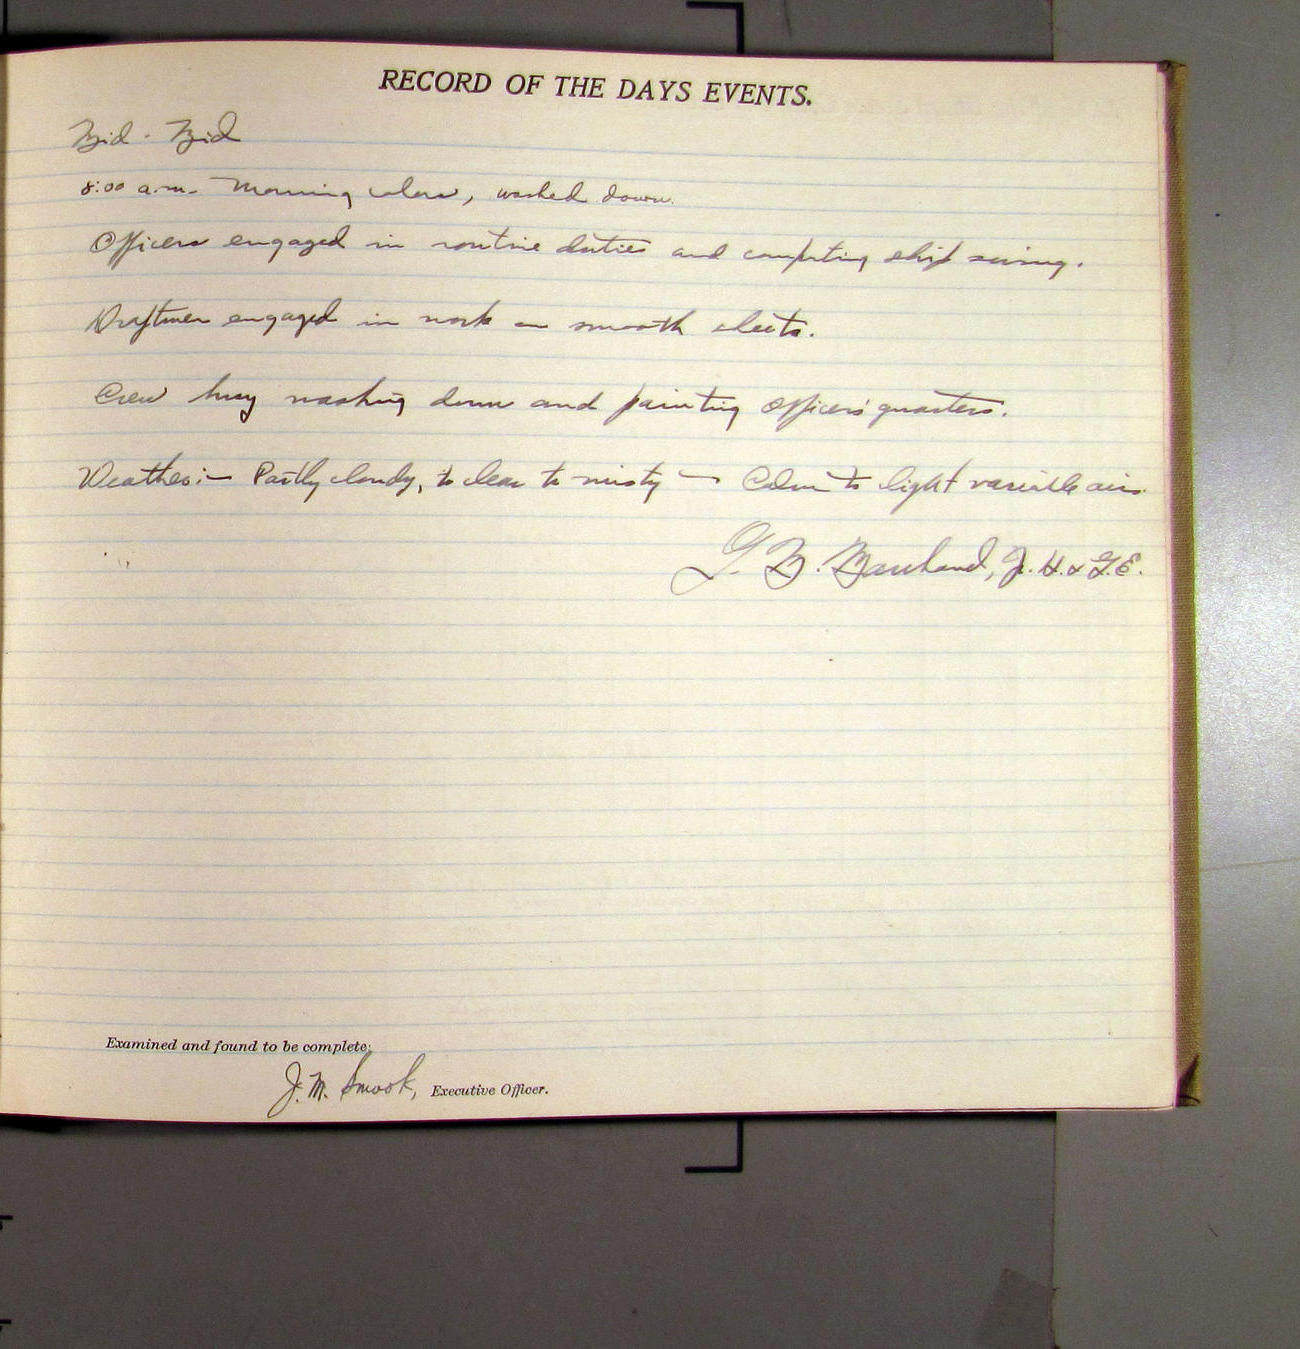 RECORD OF THE DAYS EVENTS.
Mid - Mid
8:00 a.m. Morning colors, washed down.
Officers engaged in routine duties and computing ship swing.
Draftmen engaged in work on smooth sheets.
Crew busy washing down and painting Officers' quarters.
Weather:- Partly cloudy, to clear to misty - Calm to light variable airs.
Jr. H. & G.E.
Examined and found to be complete:
J. M. Smook, Executive Officer.